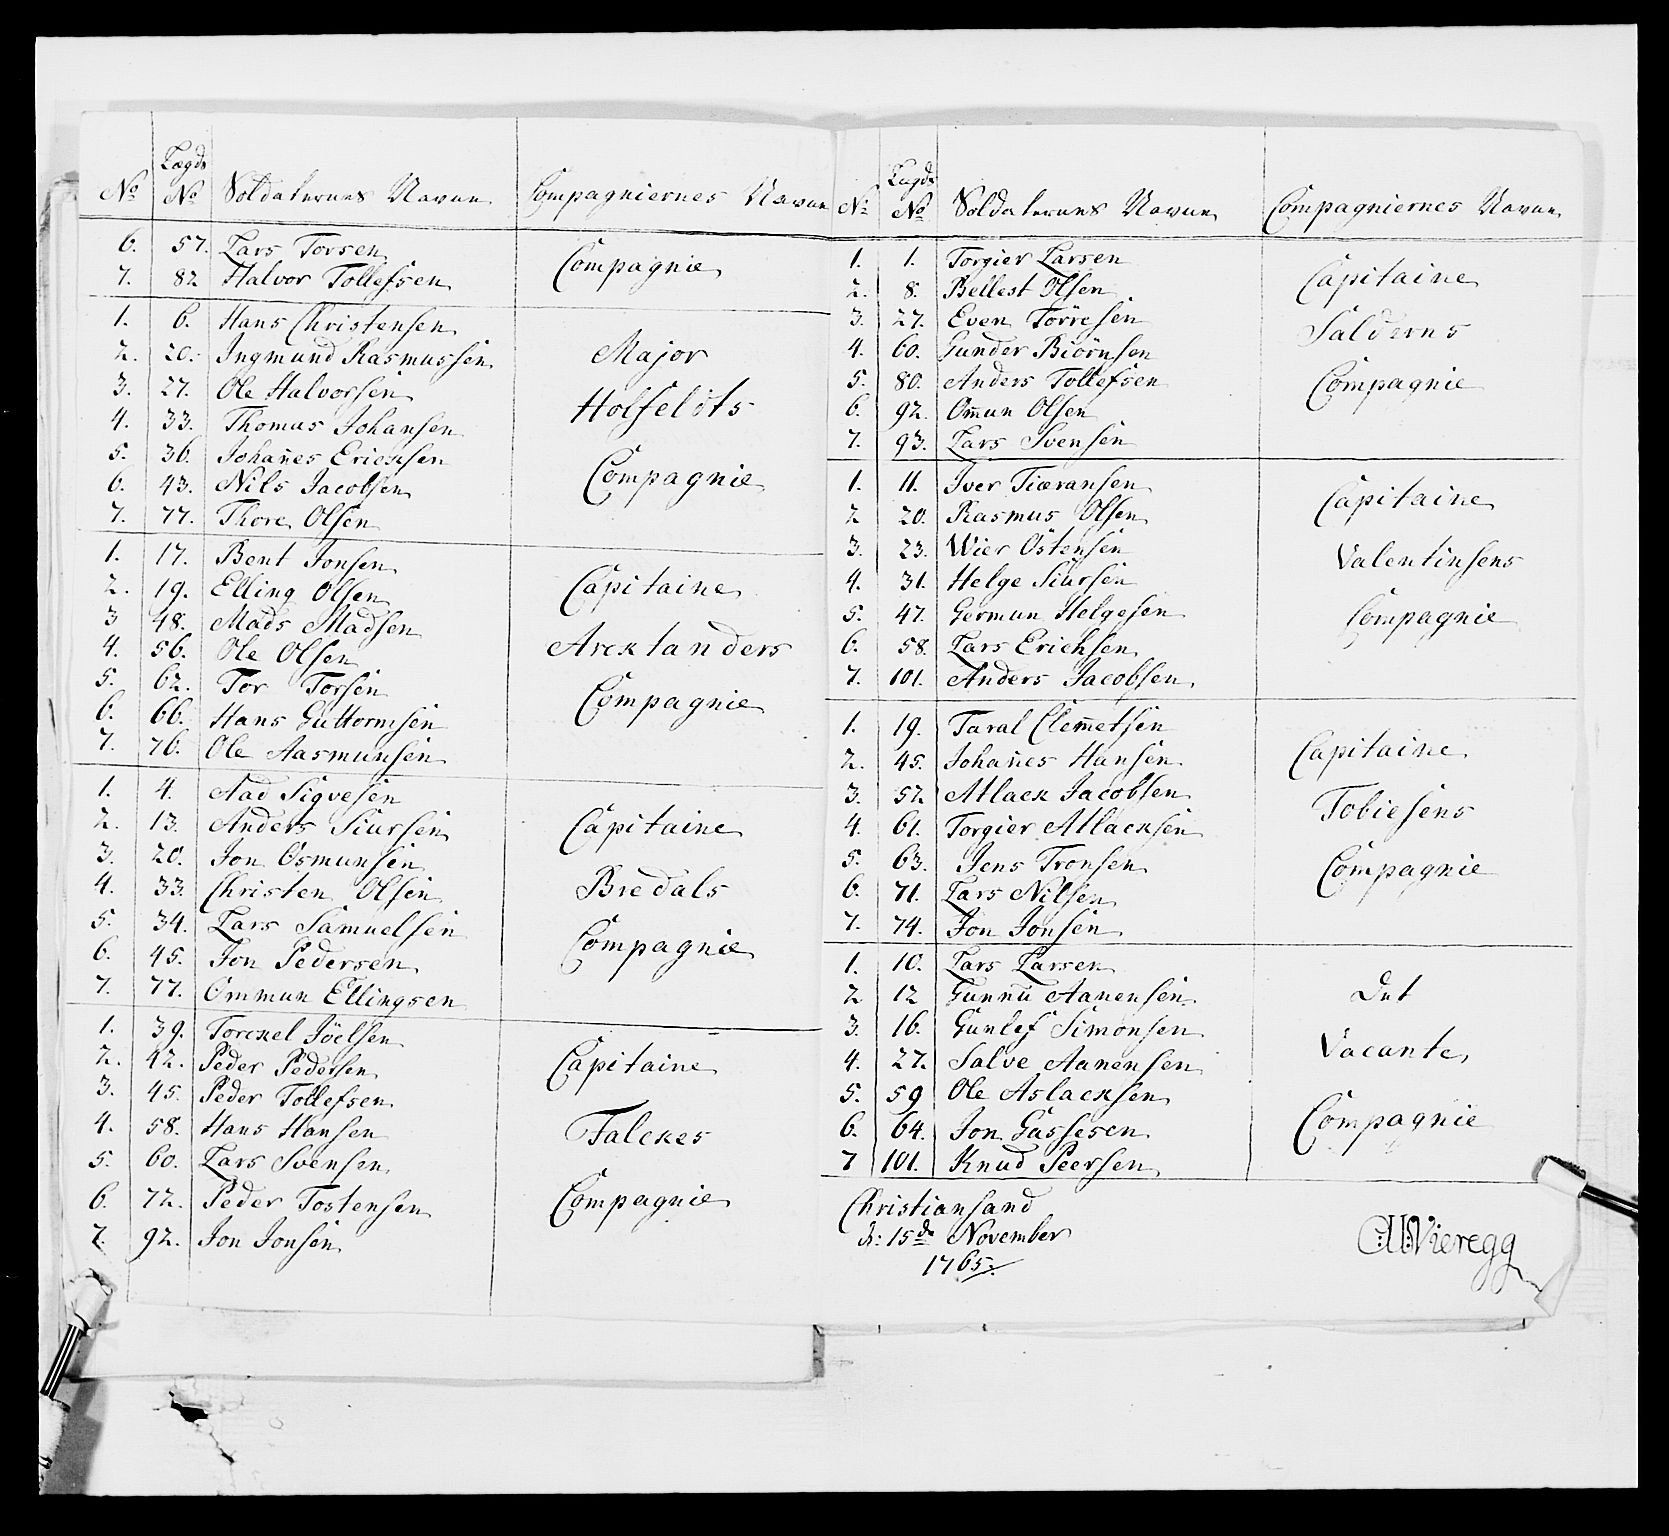 No Lægds No Soldaternes Navne Compagniernes Navne
6. 57. Lars Torsen
7. 82 Halvor Tollefsen
Compagnie
1. 6. Hans Christensen
2. 20. Ingmund Rasmussen
3. 27. Ole Halvorsen
4. 33. Thomas Johansen
5. 36. Johan̄es Ericksen
6. 43. Nils Jacobsen
7. 77. Thore Olsen
Major
Holfeldts
Compagnie
1. 17. Bent Jonsen
2. 19. Elling Olsen
3 48. Mads Madsen
4. 56. Ole Olsen
5. 62. Tor Torsen
6. 66. Hans Guttormsen
7. 76. Ole Aasmunsen
Capitaine
Arcktanders
Compagnie
1. 4. Aad Sigvesen
2. 13. Anders Siursen
3. 20. Jon Osmunsen
4. 33. Christen Olsen
5. 34. Lars Samuelsen
6. 45. Jon Pedersen
7. 77. Ommun Ellingsen
Capitaine
Bredals
Compagnie
1. 39. Torckel Jöelsen
2. 42. Peder Pedersen
3. 45. Peder Tollefsen
4. 58. Hans Hansen
5. 60. Lars Svensen
6. 72. Peder Tostensen
7. 92. Jon Jonsen
Capitaine
Falckes
Compagnie
No Lægds No Soldaternes Navne Compagniernes Navne
1. 1. Torgier Larsen
2. 8. Bellest Olsen
3. 27. Even Torresen
4. 60. Gunder Biörnsen
5. 80. Anders Tollefsen
6. 92. Om̄un Olsen
7. 93. Lars Svensen
Capitaine
Salderns
Compagnie
1. 11. Iver Tiæransen
2 20. Rasmus Olsen
3. 23. Wier Östensen
4. 31. Helge Siursen
5. 47. Germun Helgesen
6. 58. Lars Erichsen
7. 101. Anders Jacobsen
Capitaine
Valentinsens
Compagnie
1. 19. Taral Clem̄etsen
2. 45. Johan̄es Hansen
3. 52 Atlack Jacobsen
4. 61. Torgier Atlacksen
5. 63. Jens Tronsen
6. 71. Lars Nilsen
7. 74. Jon Jonsen
Capitaine
Tobiesens
Compagnie
1. 10. Lars Larsen
2 12 Gunnu Aanensen
3. 16. Gunlef Simonsen
4. 27. Salve Aanensen
5. 59 Ole Aslacksen
6. 64. Jon Gassesen
7 101. Knud Peersen
Det
Vacante
Compagnie
Christiansand
d: 15de November
1765.
Vieregg